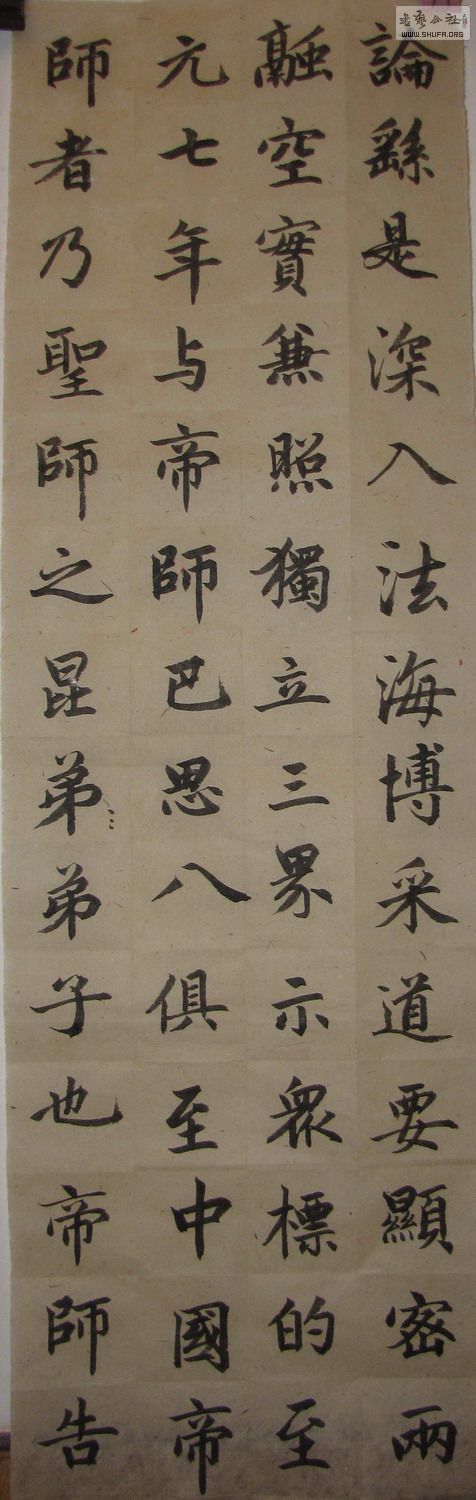 論繇是深入法海博采道要顯密兩
融空實兼照獨立三界示衆標的至
元七年与帝師巴思八俱至中國帝
師者乃聖師之昆弟弟子也帝師告
WWW.SHUFA.ORG